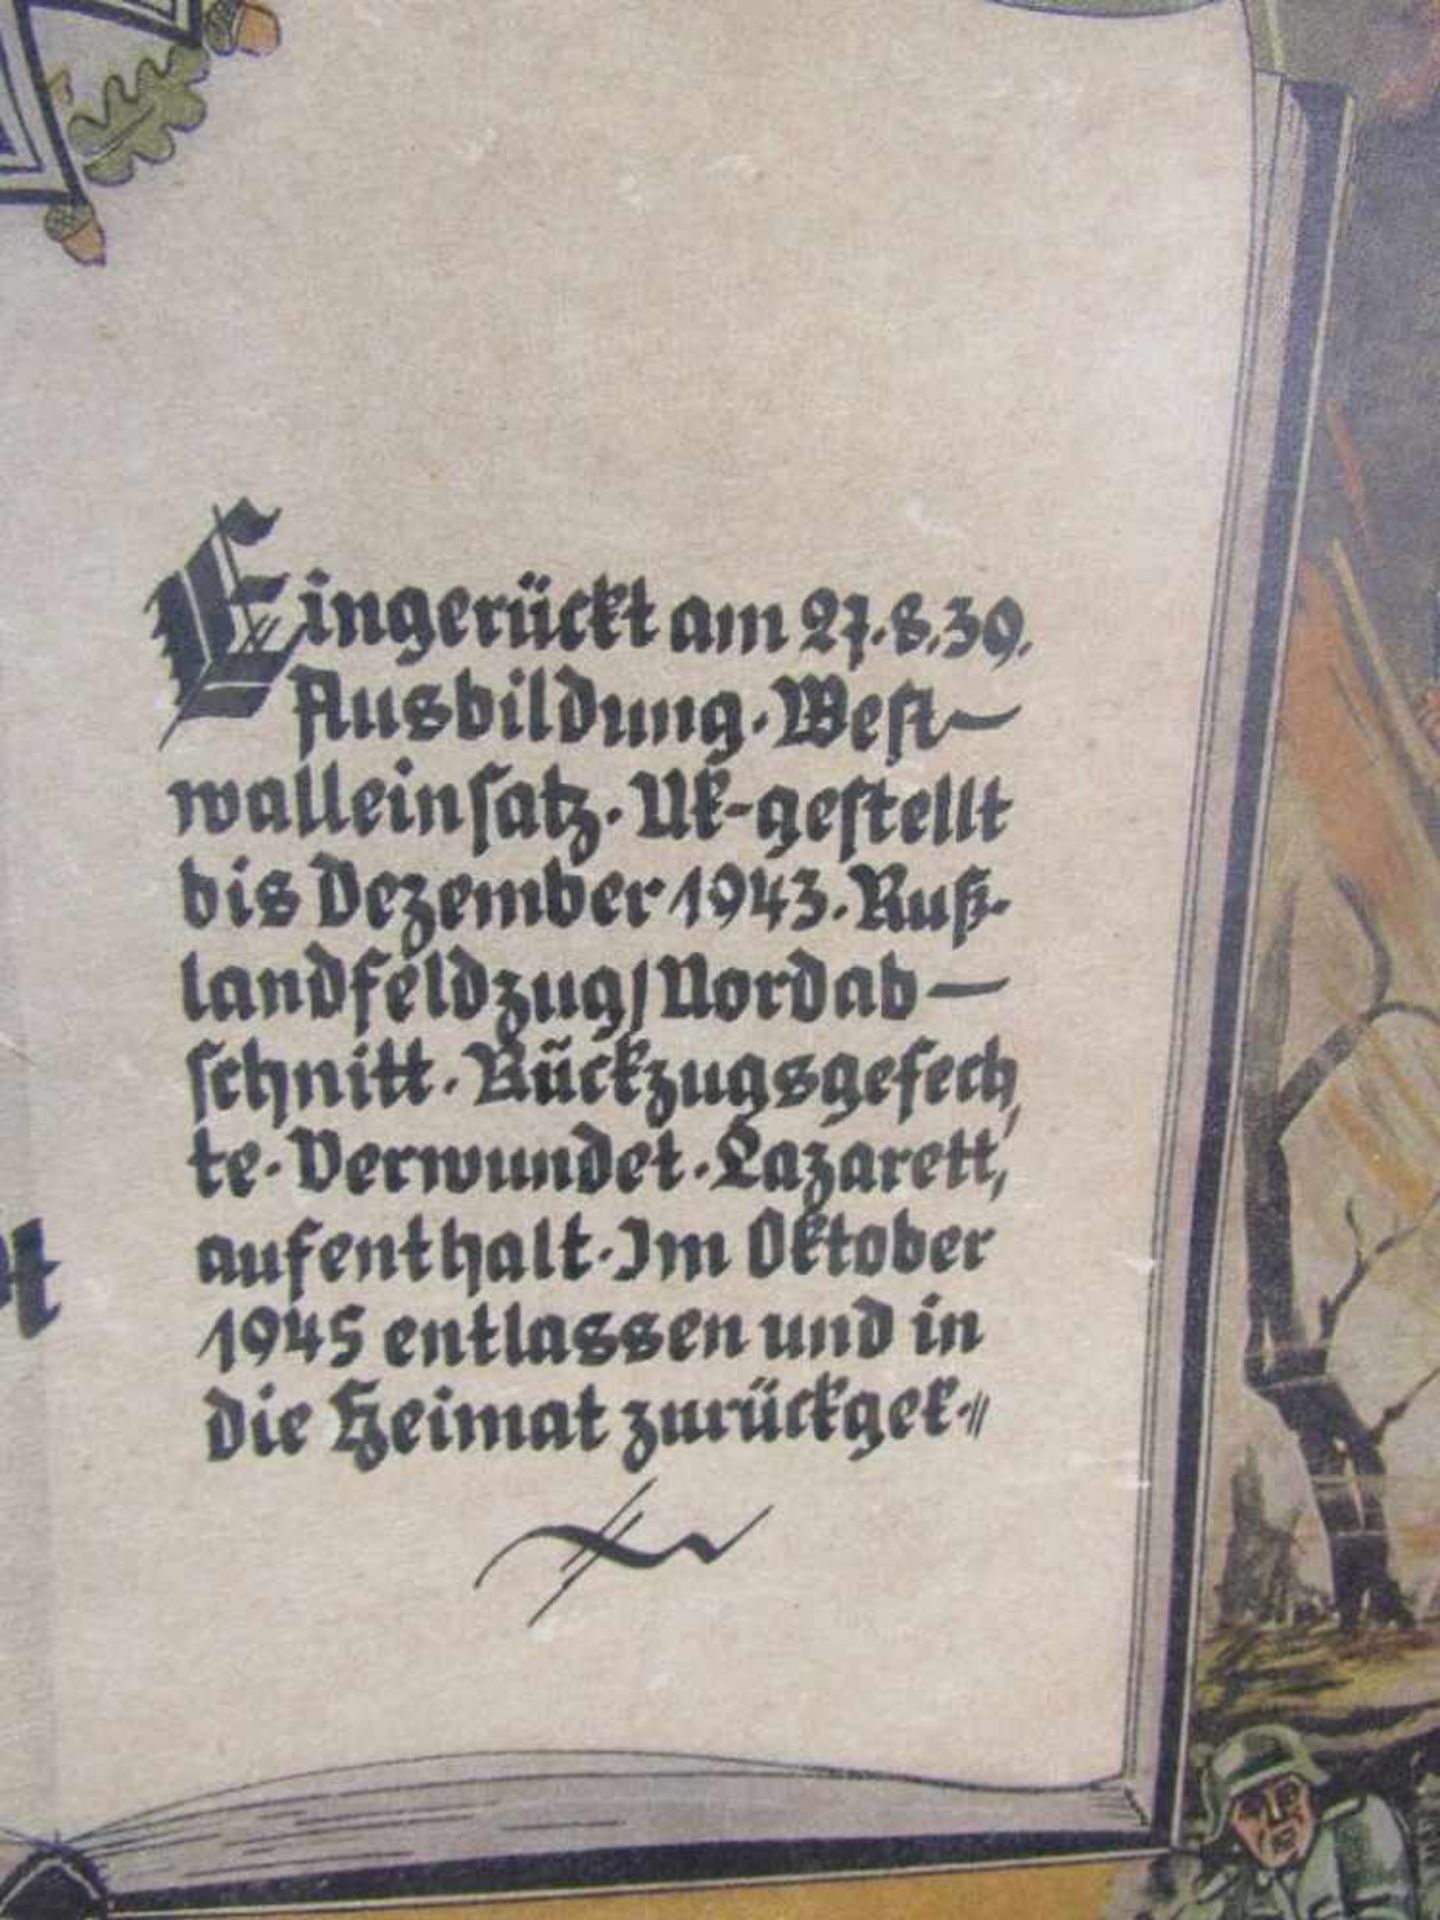 Eingerückt am 27.8.39.
Ausbildung · West-
walleinsatz · Uk-gestellt
bis Dezember 1943 · Ruß-
landfeldzug/Nordab-
schnitt · Rückzugsgefech,
te · Verwundet · Lazarett,
aufenthalt · Im Oktober
1945 entlassen und in
die Heimat zurückgek·//